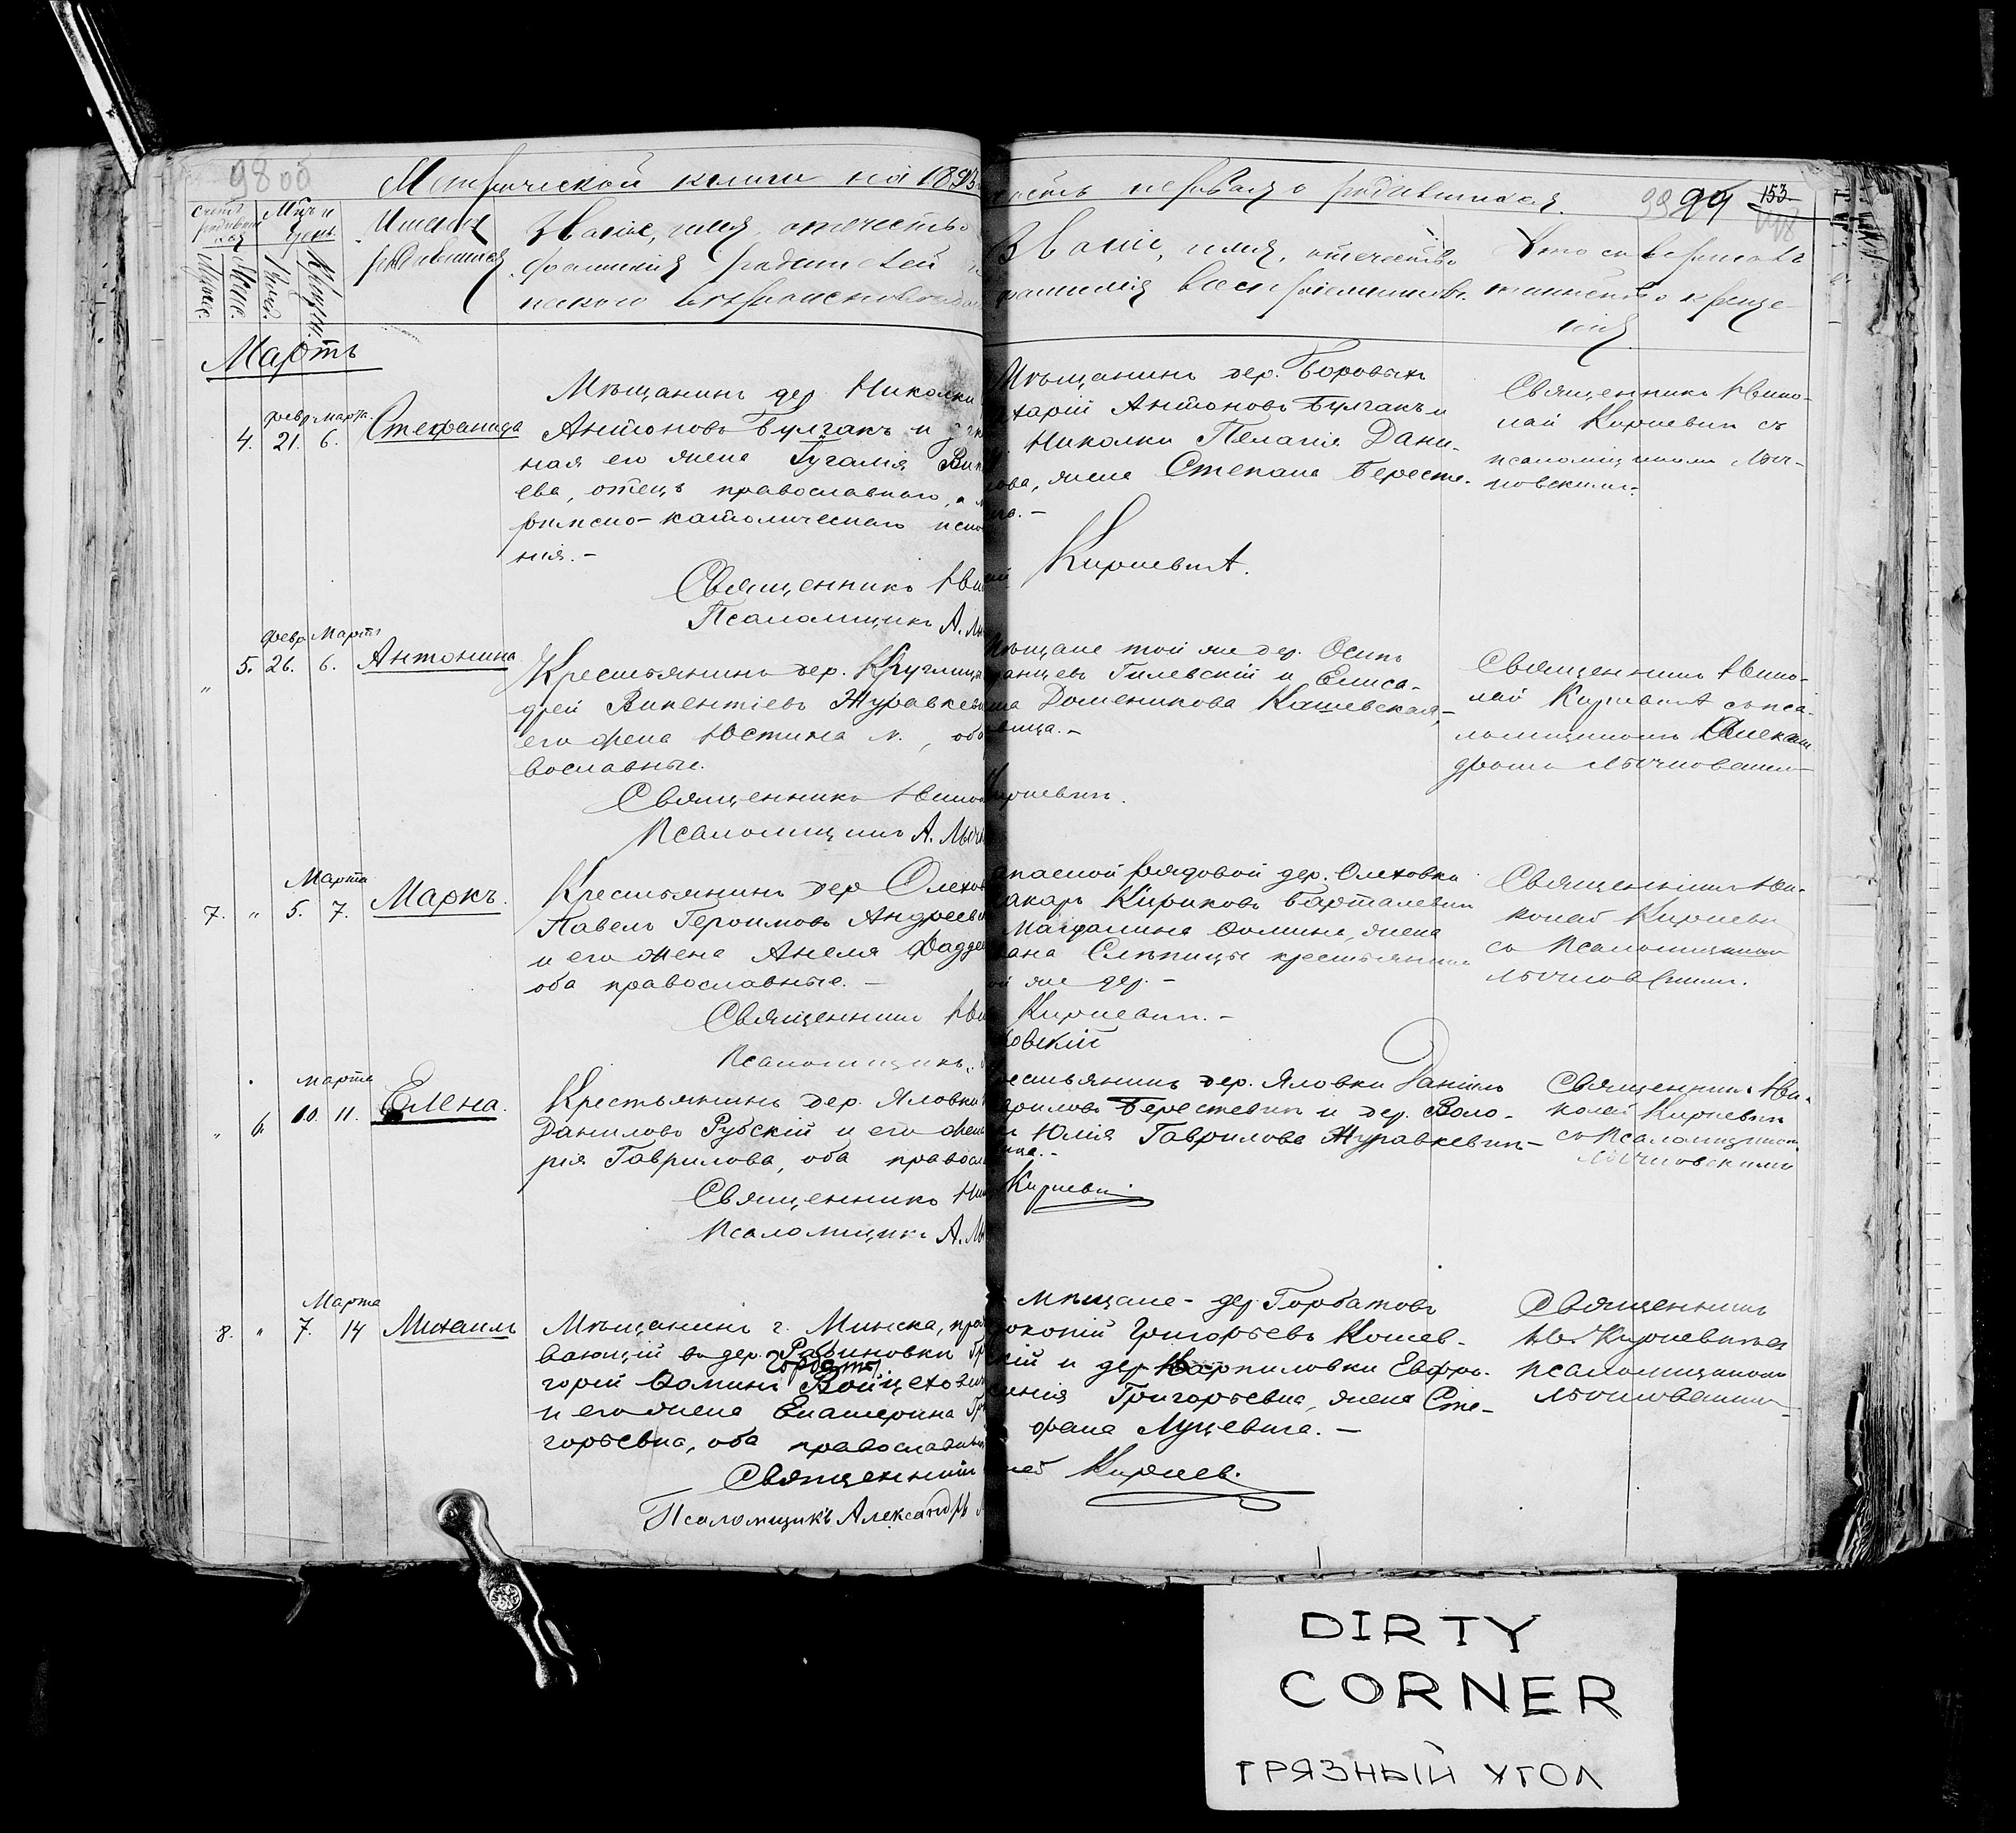 Метрической книги на 1893
часть первая о родившихся.
99 99 153
Счетъ родившихся
Мѣц и день
Имена родившихся
Званіе, имя, отечество
фамилія родителей и
какого вѣроисповѣда
Званіе, имя, отечество
фамилія воспріемниковъ
Кто совершалъ
таинство креще-
нія
Мужес.
Женс.
Рожд.
Крещен.
Мартъ
февр. марта
4. 21. 6. Стефанида
Мѣщанинъ дер. Николки
Антоновъ Булгакъ и
ная его жена Гугалія
ева, отецъ православнаго, а
римско-католическаго испо
нія.-
Священникъ Ни
Псаломщикъ А. Лы
Мѣщанинъ дер. Боровыхъ
харій Антоновъ Булгакъ и
Николки Пелагія Дани-
лова, жена Степана Бересте-
Киркевичъ.
Священникъ Нико-
лай Киркевич съ
псаломщикомъ Лыч-
ковскимъ.
февр Марта
5. 26. 6. Антонина
Крестьянинъ дер. Круглица
дрей Викентіевъ Журавкеви
его жена Юстина N., оба
вославные.
Священникъ Нико
Псаломщикъ А. Лыч
Мѣщане той же дер. Осипъ
Гилевскій и Елиса-
Доменикова Кашевская,
вица.-
Киркевич.
Священникъ Нико-
лай Киркевич съ пса-
ломщикомъ Алексан
дромъ Лычковскимъ
Марта
7. " 5. 7. Маркъ.
Крестьянинъ дер Олехов
Павелъ Героимовъ Андреев
и его жена Анеля Фадде
оба православные. -
Священникъ Ни
Псаломщикъ
запасной рядовой дер. Олеховки
Макаръ Кириковъ Барталевич
Магдалина Фомина, жена
Ивана Слѣпицы крестьянина
той же дер. -
Киркевич. -
ковскій
Священникъ Ни-
колай Киркевич
съ Псаломщикомъ
Лычковскимъ.
марта
" 6. 10. 11. Елена.
Крестьянинъ дер. Яловки
Даниловъ Рубскій и его жена
рія Гаврилова, оба правосл
Священникъ Ни
Псаломщикъ А. Лы
крестьянинъ дер. Яловки Даніилъ
Гавриловъ Берестевич и дер. Воло-
Юлія Гаврилова Журавкевич-
Киркеви
Священникъ Ни-
колай Киркевич
съ Псаломщикомъ
Лычковскимъ
Марта
8. " 7. 14 Михаилъ
Мѣщанинъ г. Минска, про
вающій въ дер. Рабиновки Гр
Горбаты
горій Фоминъ Войцехови
и его жена Екатерина Гри
горьевна, оба православны
Священникъ
Псаломщикъ Александръ
мѣщане - дер. Горбатовъ
Прокопій Григорьевъ Кошев-
скій и дер Карпиловки Евфро-
синія Григорьевна, жена Сте-
фана Луцевича. -
Киркев.
Священникъ
Ник. Киркевичъ съ
псаломщикомъ
Лычковскимъ
DIRTY
CORNER
ГРЯЗНЫЙ УГОЛ